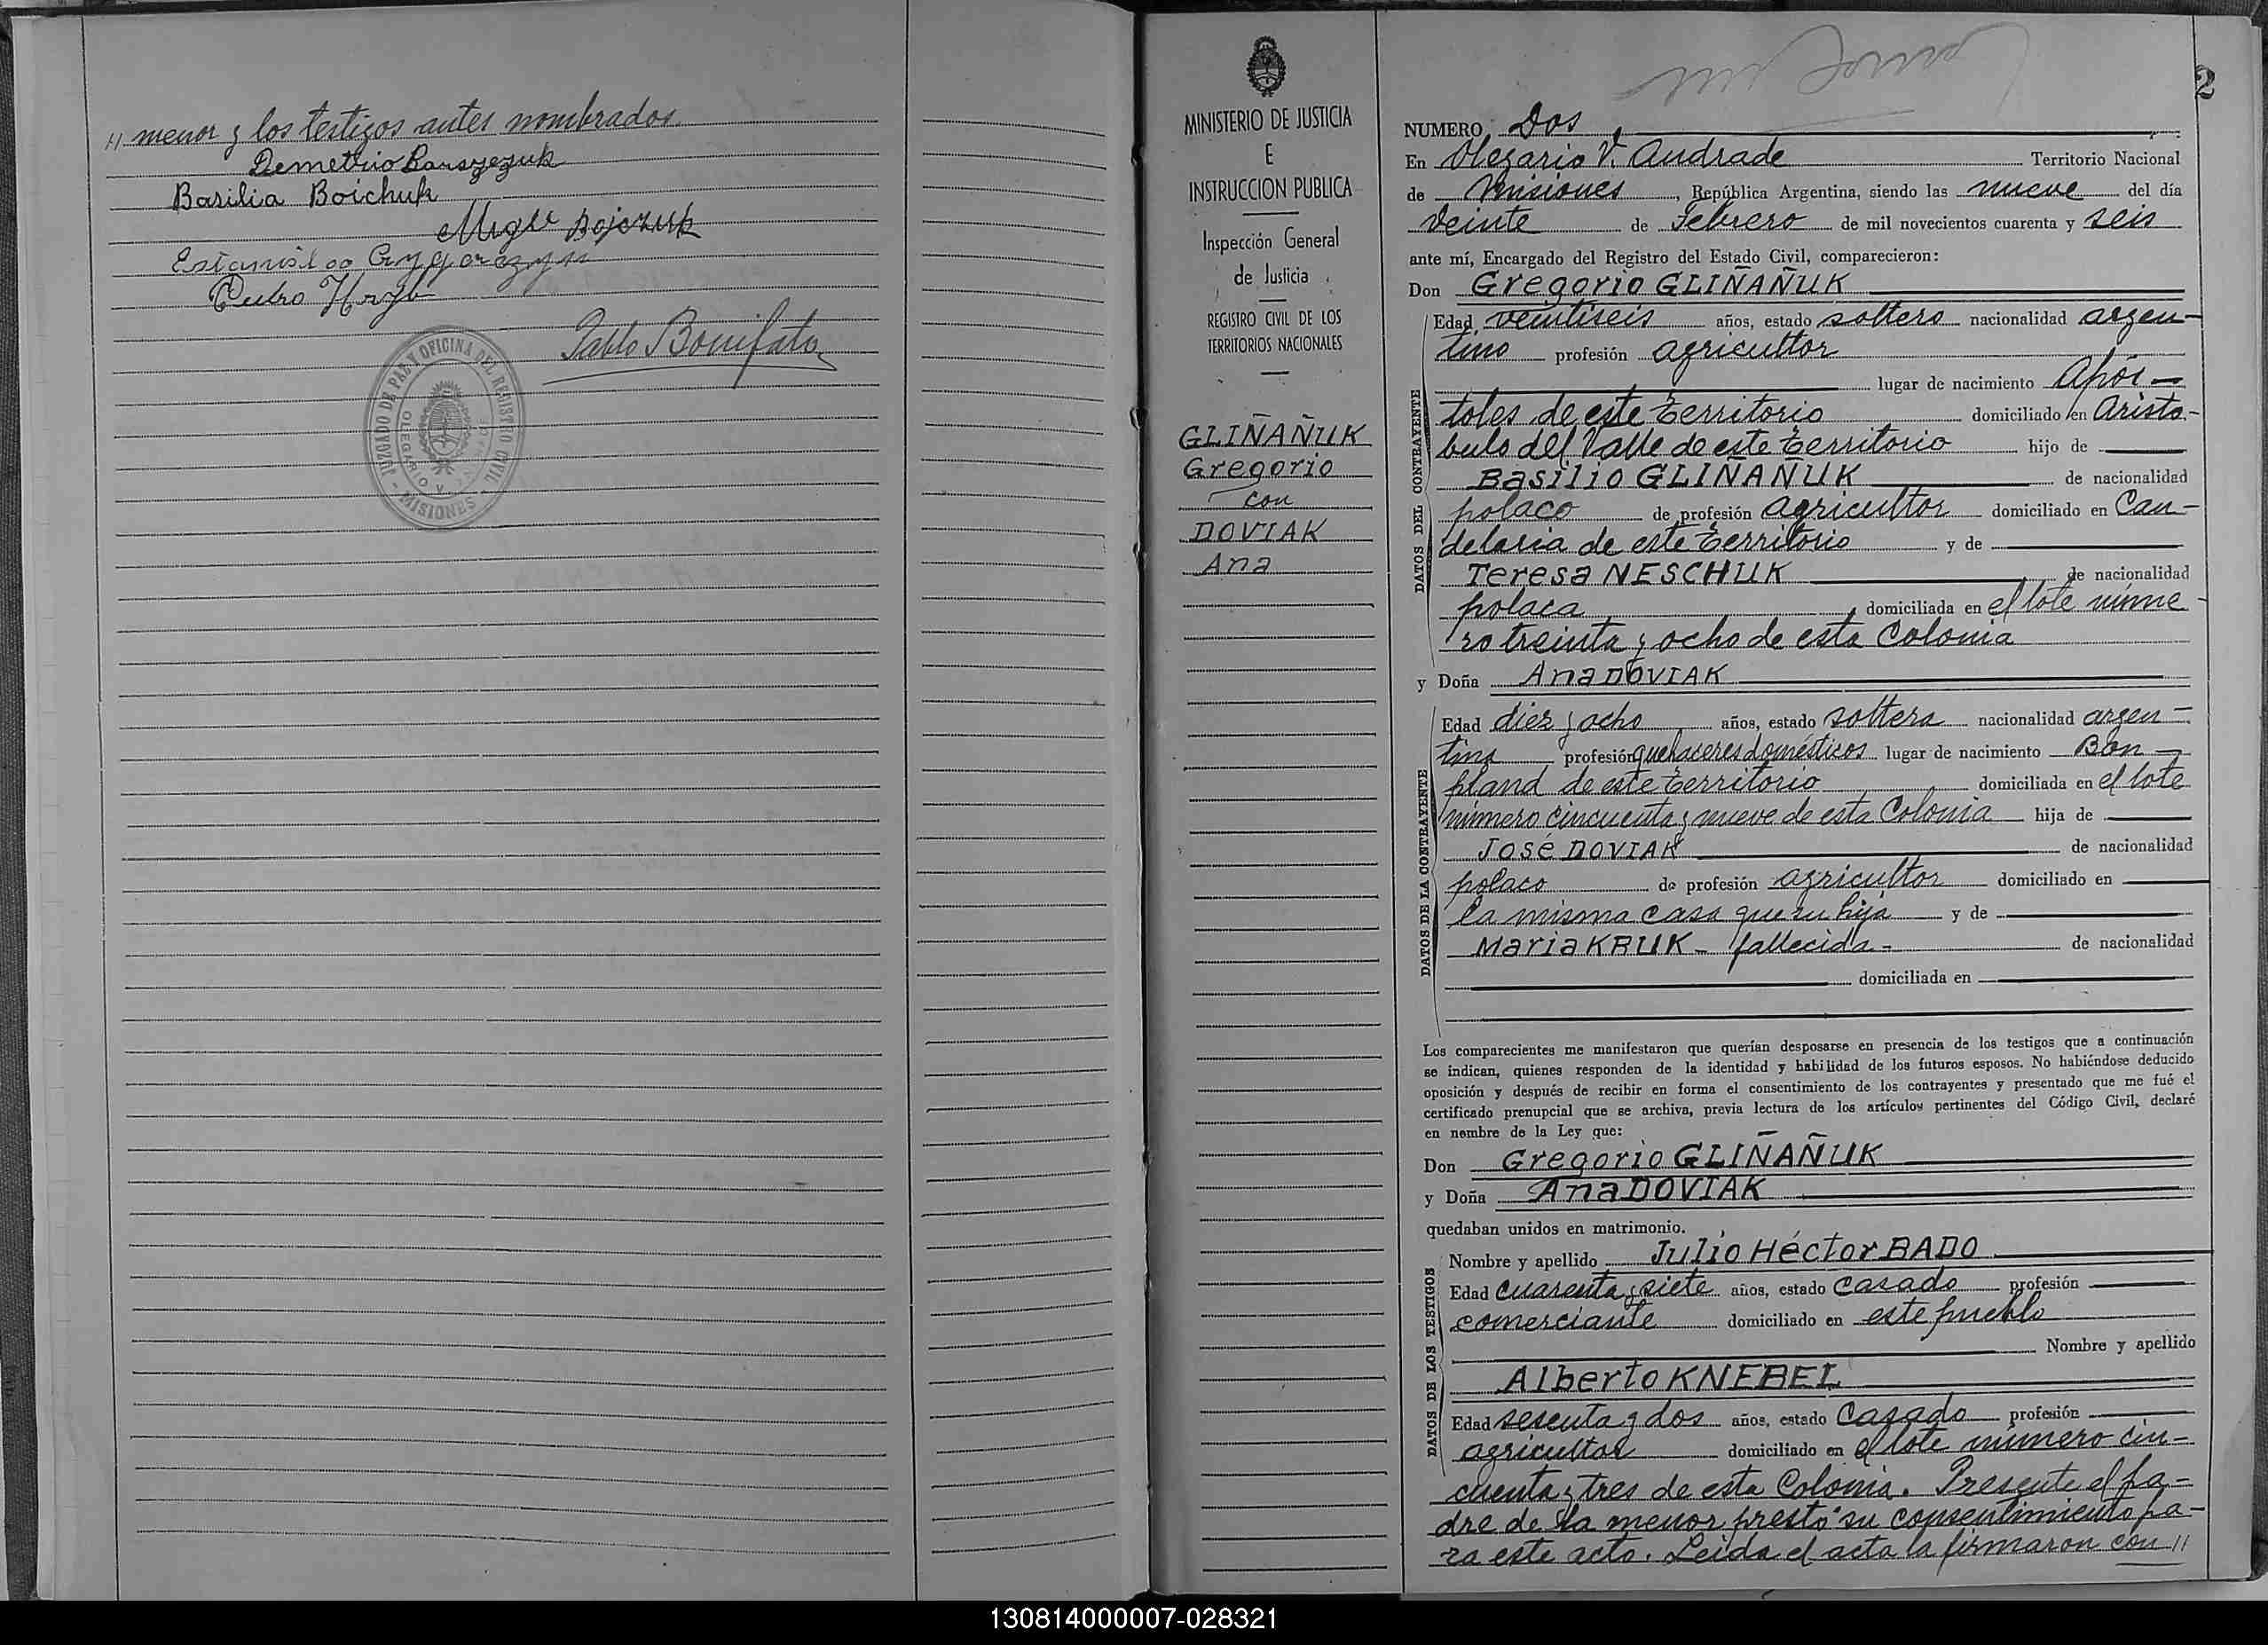 // menor y los testigos antes nombrados.
Basilia Boichuk
Pedro Hryb
Pablo Bonifato
JUZGADO DE PAZ Y OFICINA DEL REGISTRO CIVIL - MISIONES -
OLEGARIO V.
MINISTERIO DE JUSTICIA
E
INSTRUCCION PUBLICA
Inspección General
de Justicia
REGISTRO CIVIL DE LOS
TERRITORIOS NACIONALES
GLIÑAÑUK
Gregorio
con
DOVIAK
Ana
2
NUMERO Dos
En Olegario V. Andrade Territorio Nacional
de Misiones, República Argentina, siendo las nueve del día
veinte de Febrero de mil novecientos cuarenta y seis
ante mí, Encargado del Registro del Estado Civil, comparecieron:
Don Gregorio GLIÑAÑUK
DATOS DEL CONTRAYENTE
Edad veintiseis años, estado soltero nacionalidad argen-
tino profesión agricultor
lugar de nacimiento Após-
toles de este territorio domiciliado en Aristo-
bulo del Valle de este territorio hijo de
Basilio GLIÑAÑUK de nacionalidad
polaco de profesión agricultor domiciliado en Can-
delaria de este territorio y de
Teresa NESCHUK de nacionalidad
polaca domiciliada en el lote núme-
ro treinta y ocho de esta Colonia
y Doña Ana DOVIAK
DATOS DE LA CONTRAYENTE
Edad diez y ocho años, estado soltera nacionalidad argen-
tina profesión quehaceres domésticos lugar de nacimiento Bon-
pland de este territorio domiciliada en el lote
número cincuenta y nueve de esta Colonia hija de
José DOVIAK de nacionalidad
polaco de profesión agricultor domiciliado en
la misma casa que su hija y de
Maria KRUK - fallecida - de nacionalidad
domiciliada en
Los comparecientes me manifestaron que querían desposarse en presencia de los testigos que a continuación
se indican, quienes responden de la identidad y habilidad de los futuros esposos. No habiéndose deducido
oposición y después de recibir en forma el consentimiento de los contrayentes y presentado que me fué el
certificado prenupcial que se archiva, previa lectura de los artículos pertinentes del Código Civil, declaré
en nombre de la Ley que:
Don Gregorio GLIÑAÑUK
y Doña Ana DOVIAK
quedaban unidos en matrimonio.
DATOS DE LOS TESTIGOS
Nombre y apellido Julio Héctor BADO
Edad cuarenta y siete años, estado casado profesión
comerciante domiciliado en este pueblo
Nombre y apellido
Alberto KNEBEL
Edad sesenta y dos años, estado casado profesión
agricultor domiciliado en el lote número cin-
cuenta y tres de esta Colonia. Presente el pa-
dre de la menor prestó su consentimiento pa-
ra este acto. Leida el acta la firmaron con //
130814000007-028321